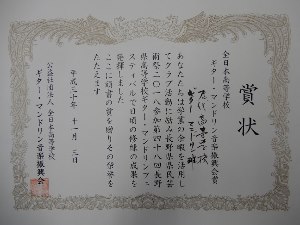 賞状
全日本高等学校
ギター・マンドリン音楽振興会賞
ギター・マンドリン部
あなたたちは学業の余暇を活用し
てクラブ活動に励み長野県県民芸
術祭二〇一八参加第四十八回長野
県高等学校ギター・マンドリンフェ
スティバルで日頃の修練の成果を
発揮しました
ここに頭書の賞を贈りその栄誉を
たたえます
平成三十年 十一月 三日
公益社団法人 全日本高等学校
ギター・マンドリン音楽振興会